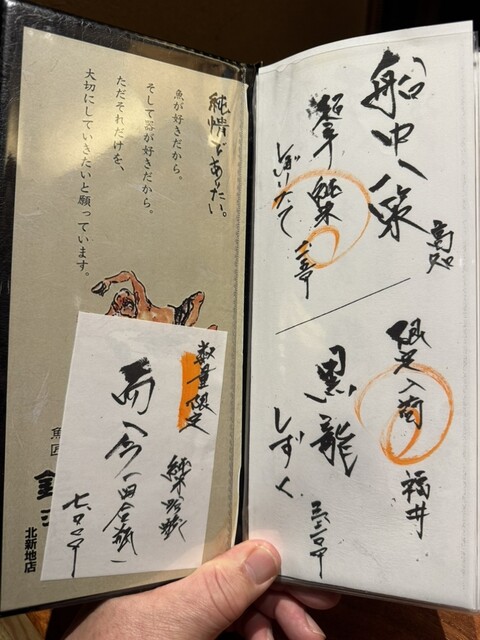 船中八策
高知
超辛 純米
しぼりたて
限定入荷
福井
黒龍
しずく
純情でありたい。
魚が好きだから。
そして器が好きだから。
ただそれだけを、
大切にしていきたいと願っています。
数量限定
而今 一四合瓶一
純米吟醸
北新地店